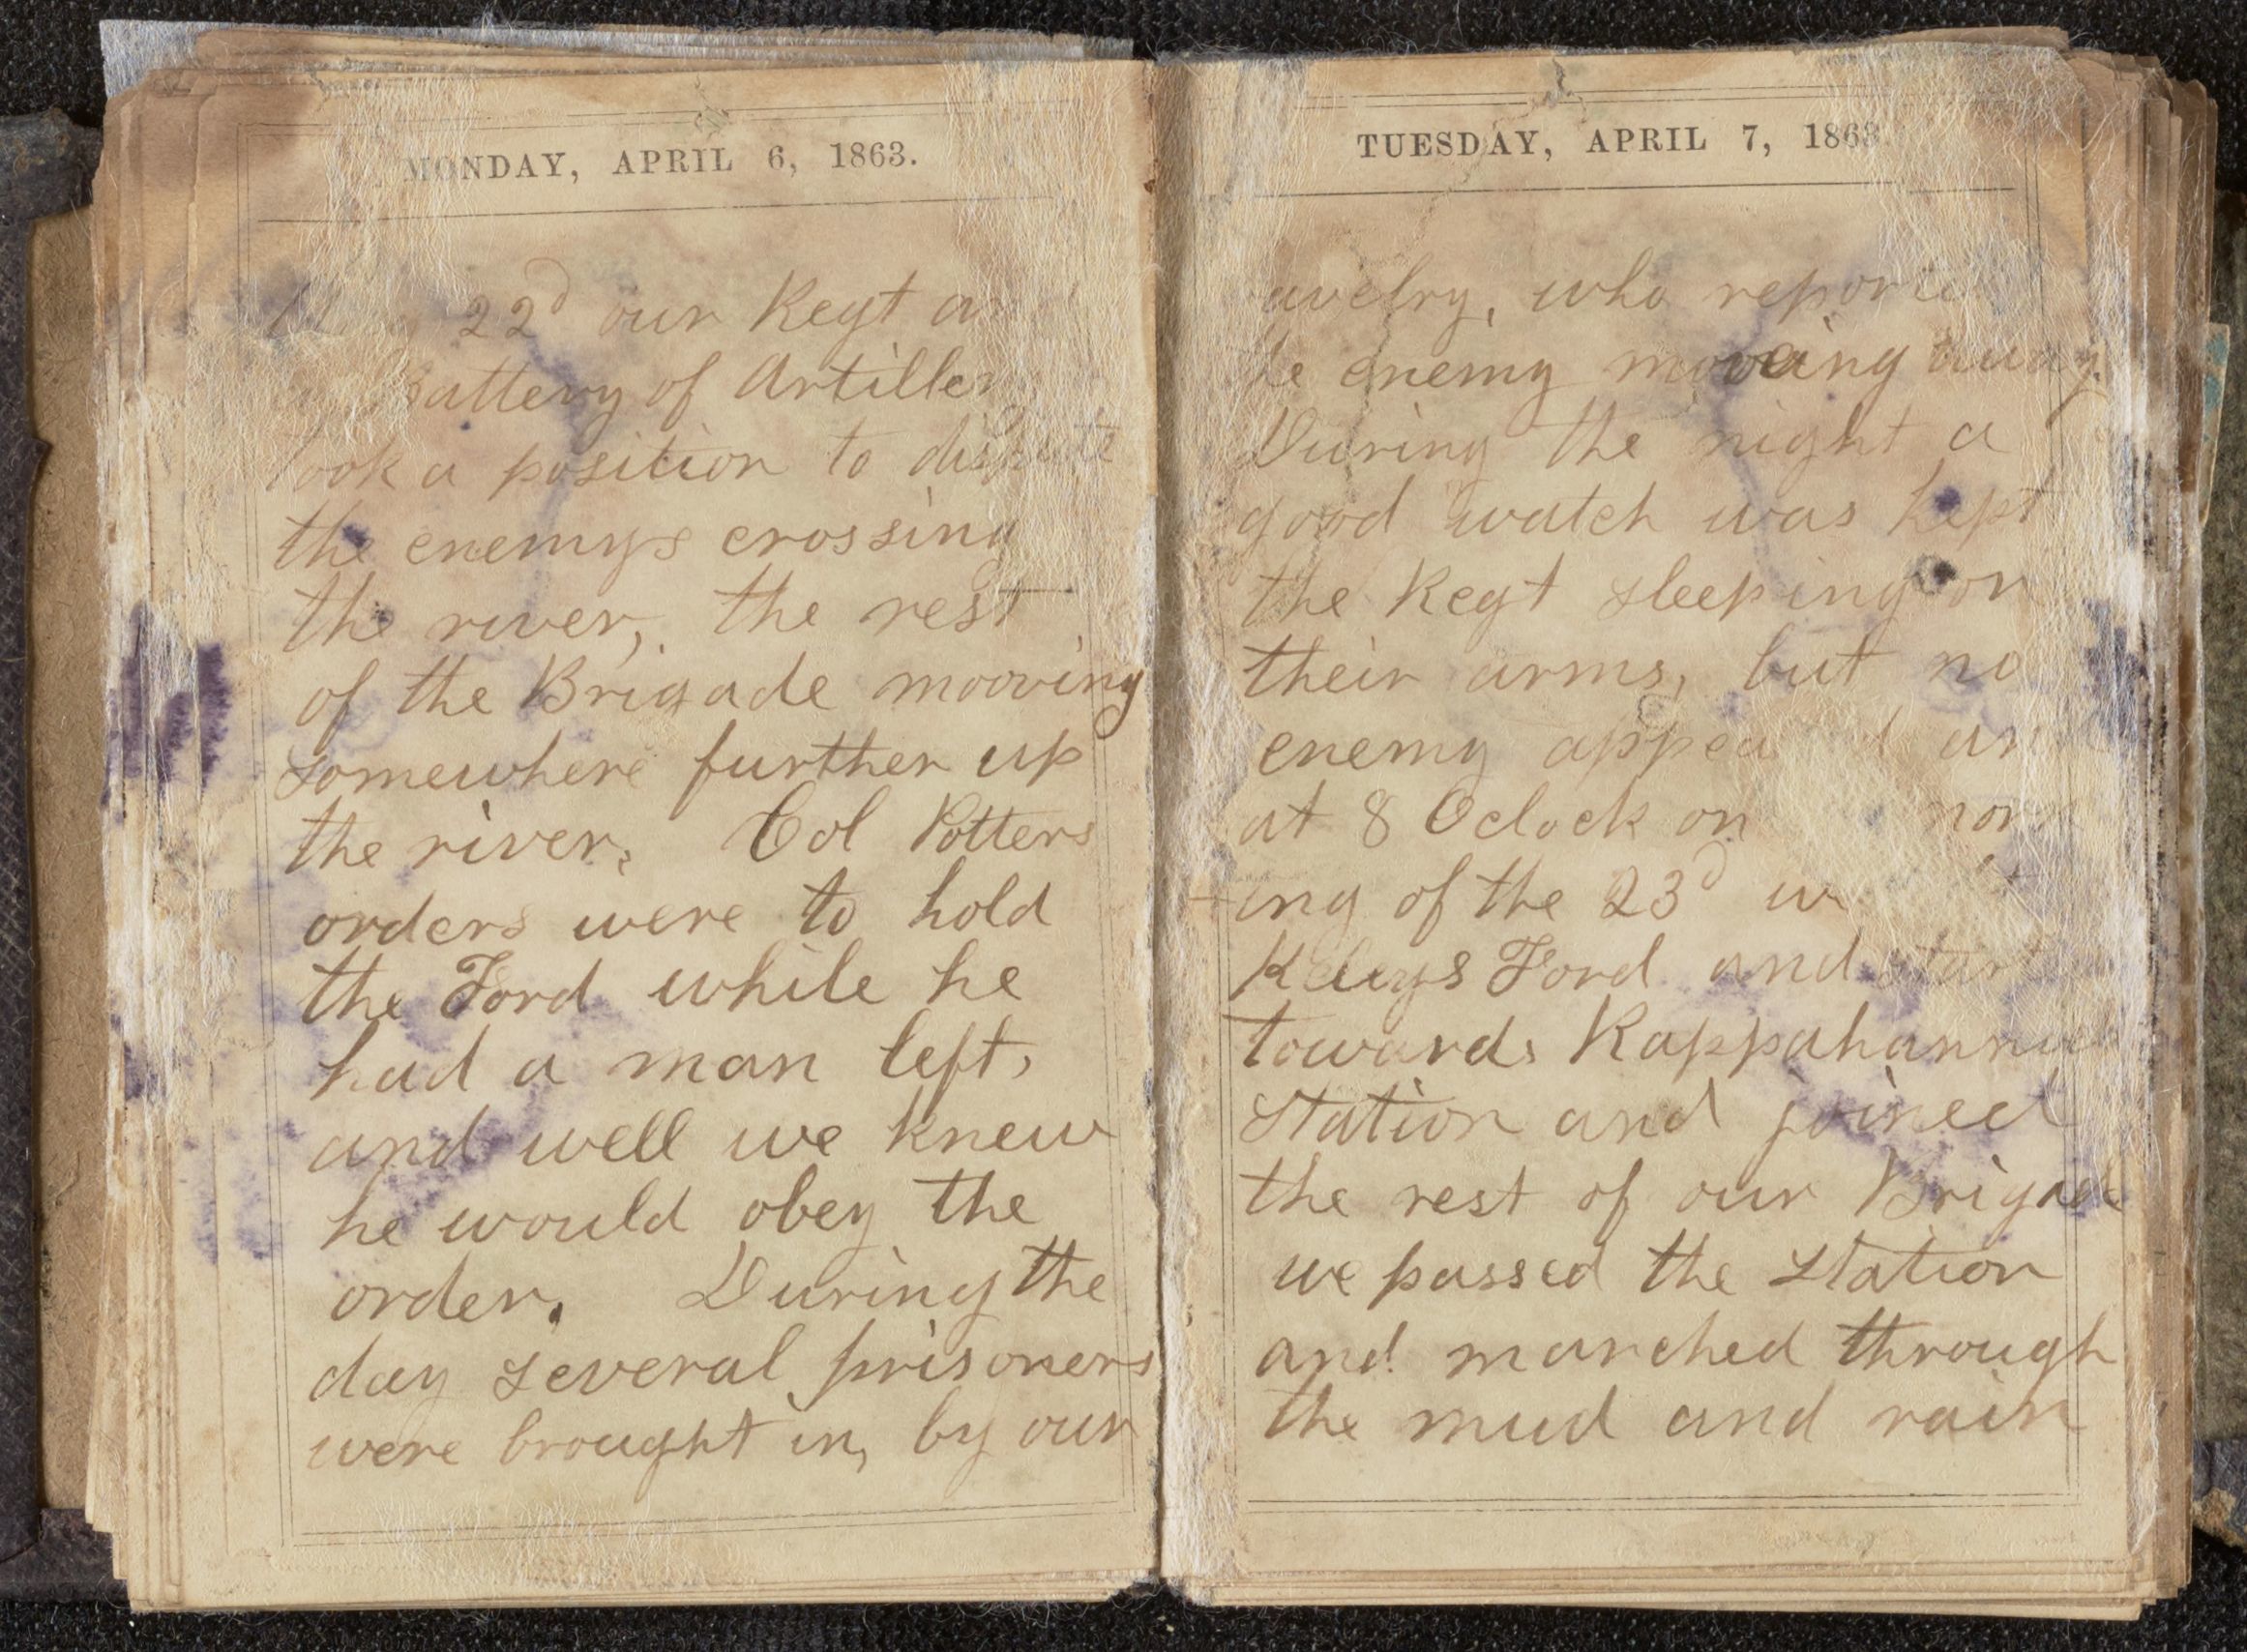 MONDAY, APRIL 6, 1863.
22d our Regt
Battery of Artillery
took a position to dispute
the enemys crossing
the river, the rest
of the Brigade mooving
somewhere further up
the river. Col Potters
orders were to hold
the Ford while he
had a man left,
and well we knew
he would obey the
order. During the
day several prisoners
were brought in, by our
TUESDAY, APRIL 7, 1863
avelry, who reporte
he enemy mooving away.
During the night a
good watch was kept
the Regt sleeping on
their arms, but no
enemy appea d an
at 8 Oclock on morn
ing of the 23d
Kellys Ford and start
towards Rappahannoc
Station and joined
the rest of our Brigade
we passed the Station
and marched through
the mud and rain